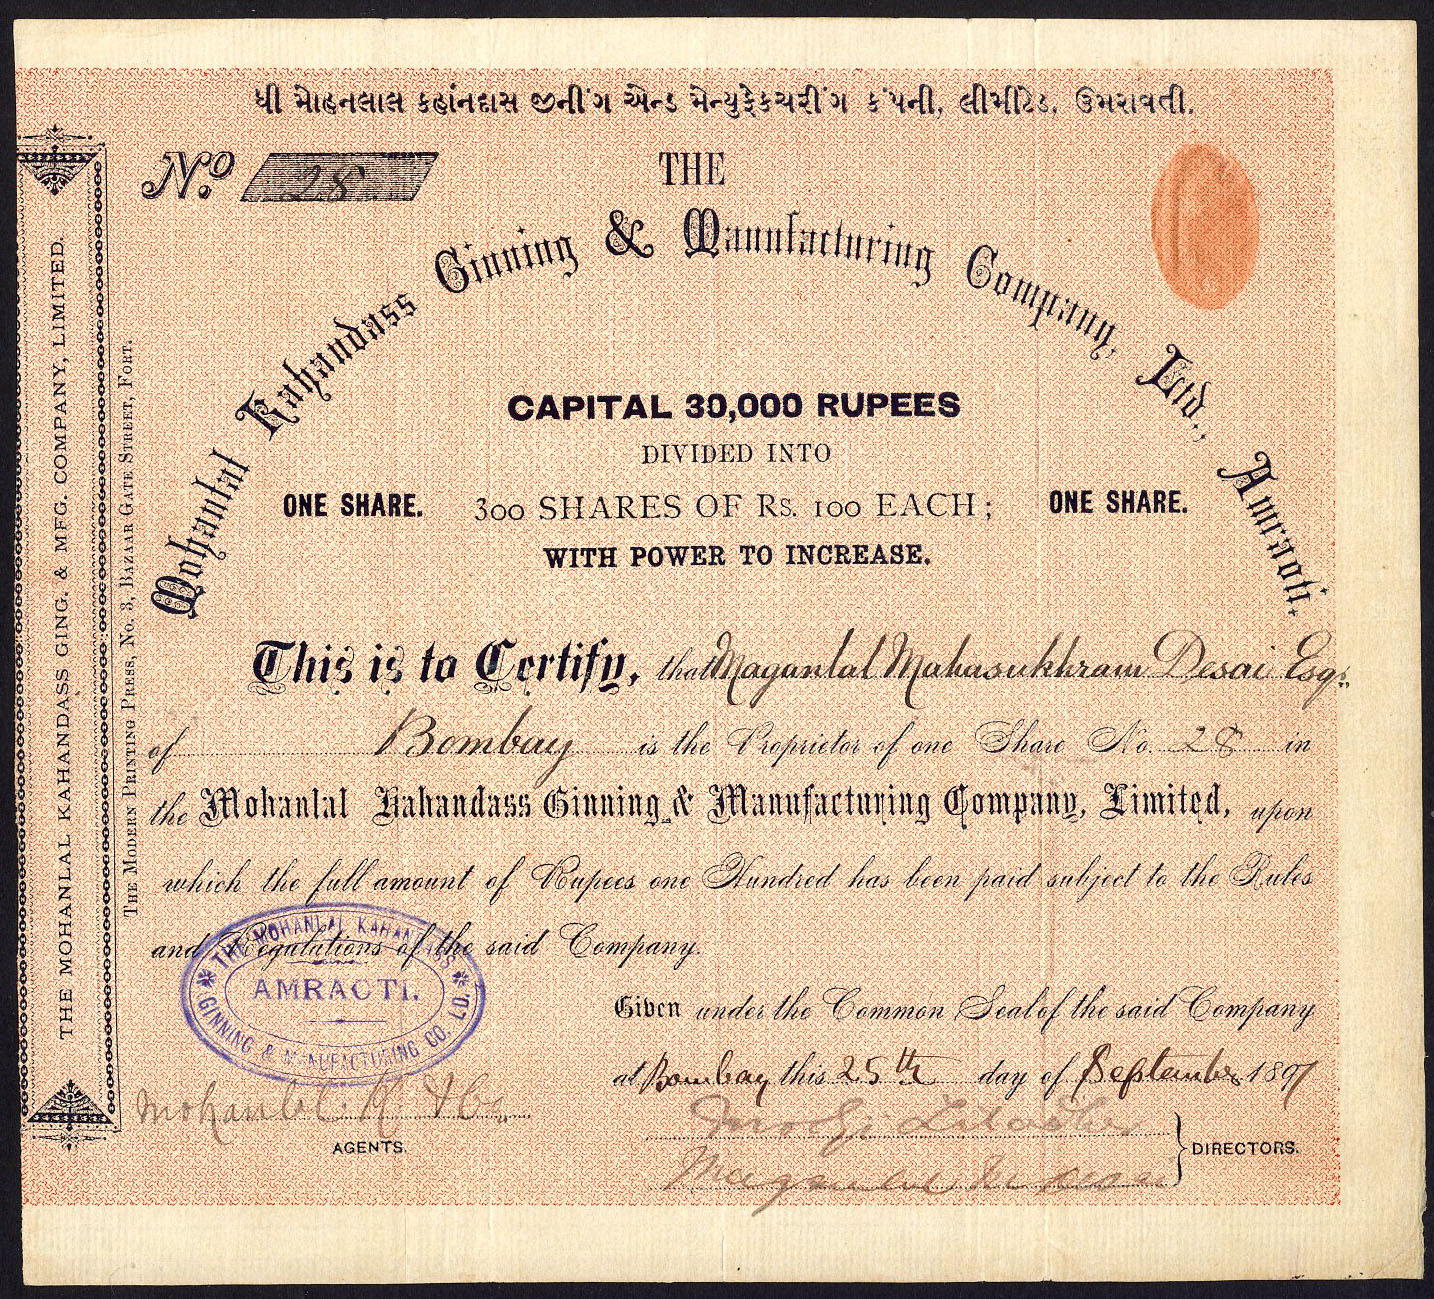 ધી મોહનલાલ કહાંનદાસ જીનીંગ એન્ડ મેન્યુફેકચરીંગ કંપની, લીમીટેડ, ઉમરાવતી.
No. 28
THE
Mohanlal Kahandass Ginning & Manufacturing Company, Ltd., Amraoti.
CAPITAL 30,000 RUPEES
DIVIDED INTO
ONE SHARE. 300 SHARES OF RS. 100 EACH; ONE SHARE.
WITH POWER TO INCREASE.
This is to Certify, that Maganlal Mahasukhram Desai Esqr.
of Bombay is the Proprietor of one Share No. 28 in
the Mohanlal Kahandass Ginning & Manufacturing Company, Limited, upon
which the full amount of Rupees one Hundred has been paid subject to the Rules
and Regulations of the said Company.
Given under the Common Seal of the said Company
at Bombay this 25th day of September 1897
THE MOHANLAL KAHANDASS
AMRAOTI.
GINNING & MANUFACTURING CO. LD.
Mohanlal K & Co
AGENTS.
DIRECTORS.
THE MOHANLAL KAHANDASS GING. & MFG. COMPANY, LIMITED.
THE MODERN PRINTING PRESS, No. 3, BAZAAR GATE STREET, FORT.